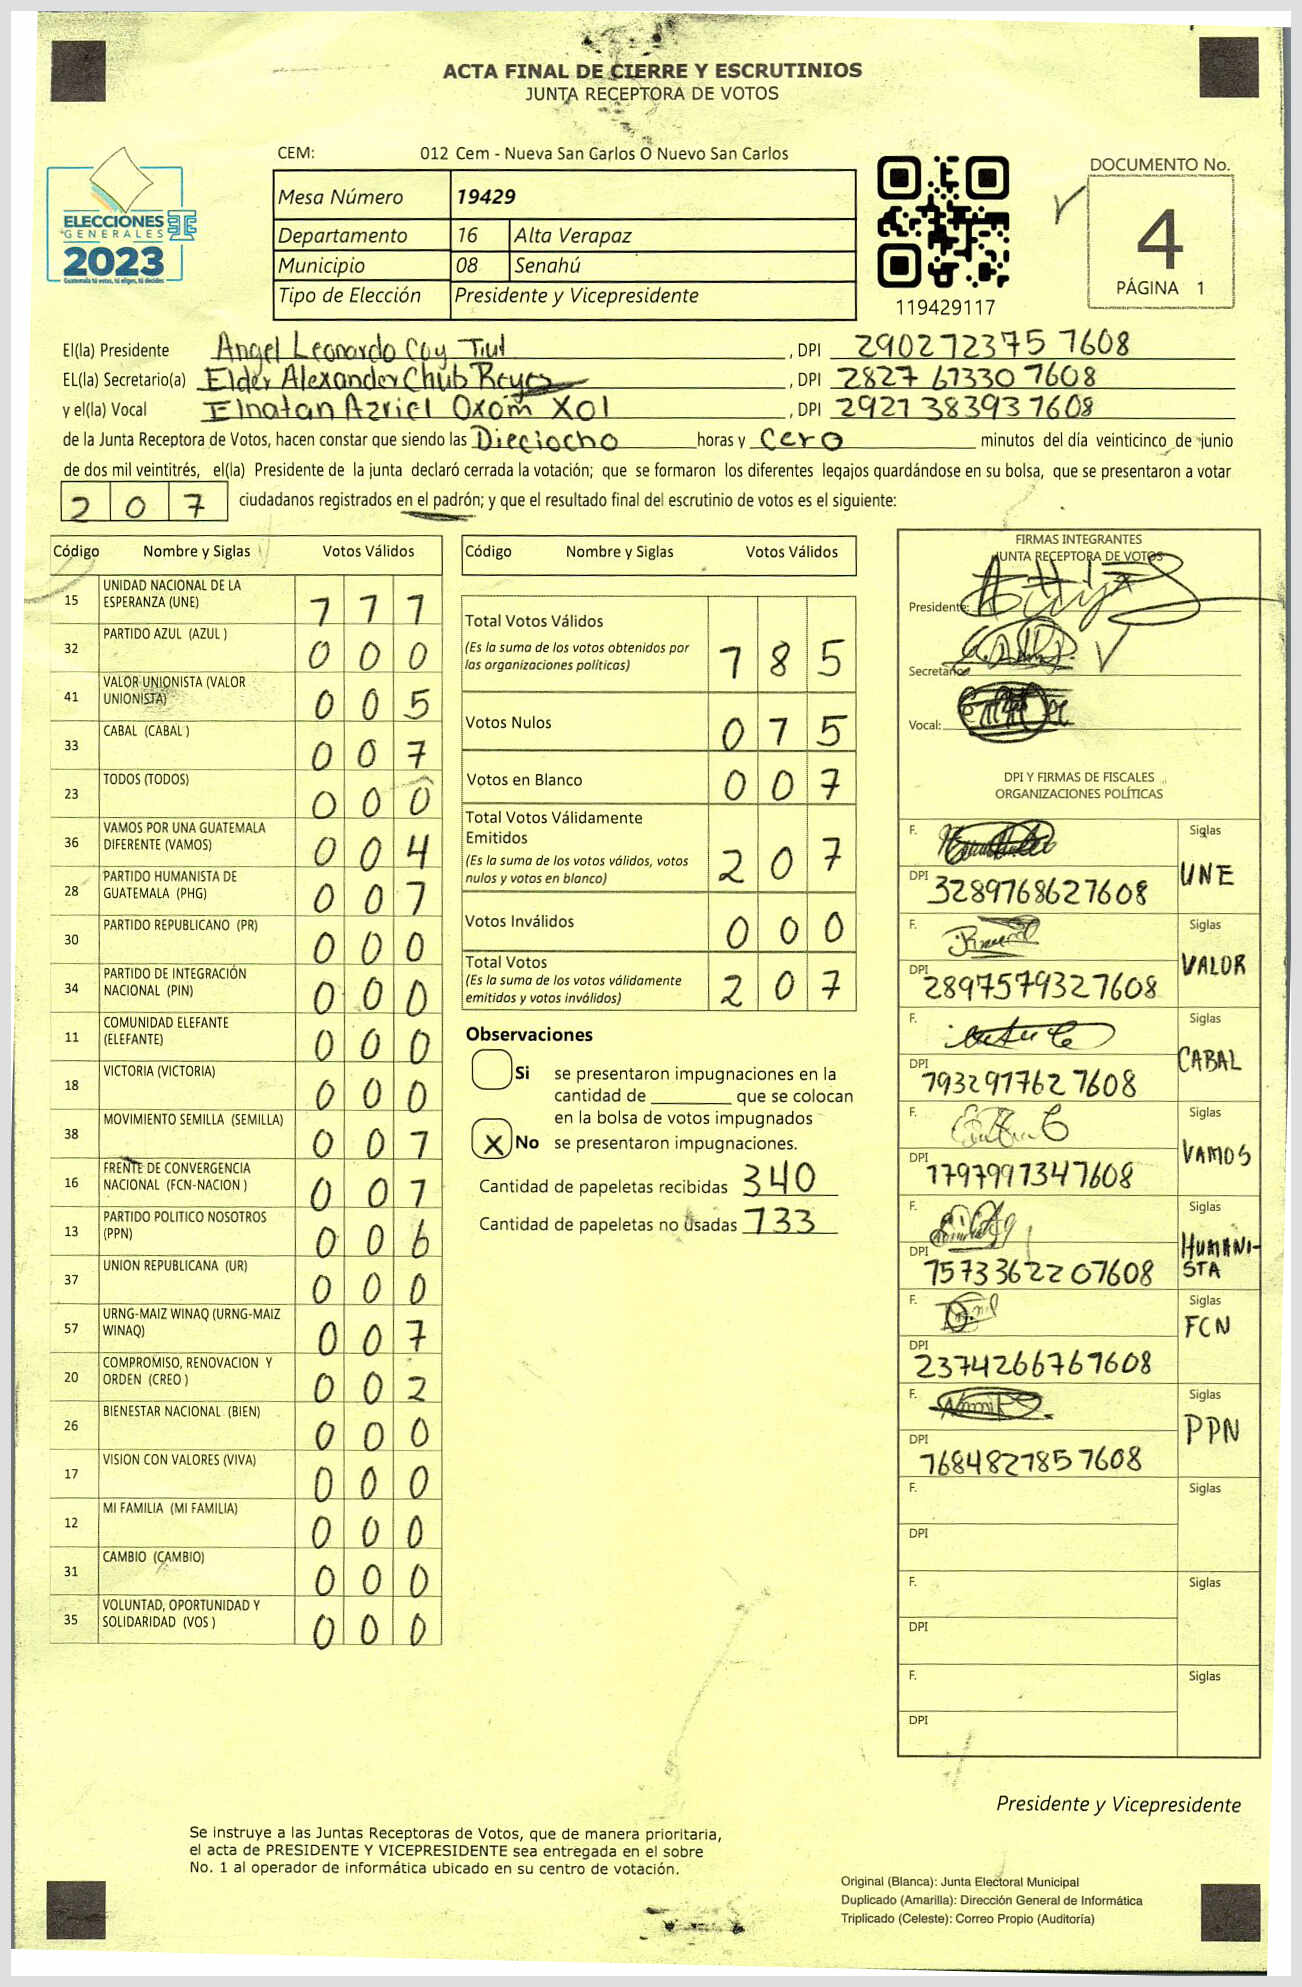 ACTA FINAL DE CIERRE Y ESCRUTINIOS
JUNTA RECEPTORA DE VOTOS
CEM: 012 Cem - Nueva San Carlos O Nuevo San Carlos
ELECCIONES
GENERALES
2023
Guatemala tú votas, tú eliges, tú decides
Mesa Número 19429
Departamento 16 Alta Verapaz
Municipio 08 Senahú
Tipo de Elección Presidente y Vicepresidente
119429117
DOCUMENTO No.
4
PÁGINA 1
El(la) Presidente Angel Leonardo Coy Tiul , DPI 290272375 1608
EL(la) Secretario(a) Elder Alexander Chub Reyes , DPI 2827 67330 1608
y el(la) Vocal Elnatan Azriel Oxom Xol , DPI 2921 38393 1608
de la Junta Receptora de Votos, hacen constar que siendo las Dieciocho horas y cero minutos del día veinticinco de junio
de dos mil veintitrés, el(la) Presidente de la junta declaró cerrada la votación; que se formaron los diferentes legajos guardándose en su bolsa, que se presentaron a votar
2 0 7 ciudadanos registrados en el padrón; y que el resultado final del escrutinio de votos es el siguiente:
Código Nombre y Siglas Votos Válidos
15 UNIDAD NACIONAL DE LA
ESPERANZA (UNE) 1 1 1
32 PARTIDO AZUL (AZUL ) 0 0 0
41 VALOR UNIONISTA (VALOR
UNIONISTA) 0 0 5
33 CABAL (CABAL ) 0 0 7
23 TODOS (TODOS) 0 0 0
36 VAMOS POR UNA GUATEMALA
DIFERENTE (VAMOS) 0 0 4
28 PARTIDO HUMANISTA DE
GUATEMALA (PHG) 0 0 7
30 PARTIDO REPUBLICANO (PR) 0 0 0
34 PARTIDO DE INTEGRACIÓN
NACIONAL (PIN) 0 0 0
11 COMUNIDAD ELEFANTE
(ELEFANTE) 0 0 0
18 VICTORIA (VICTORIA) 0 0 0
38 MOVIMIENTO SEMILLA (SEMILLA) 0 0 7
16 FRENTE DE CONVERGENCIA
NACIONAL (FCN-NACION ) 0 0 7
13 PARTIDO POLITICO NOSOTROS
(PPN) 0 0 6
37 UNION REPUBLICANA (UR) 0 0 0
57 URNG-MAIZ WINAQ (URNG-MAIZ
WINAQ) 0 0 7
20 COMPROMISO, RENOVACION Y
ORDEN (CREO ) 0 0 2
26 BIENESTAR NACIONAL (BIEN) 0 0 0
17 VISION CON VALORES (VIVA) 0 0 0
12 MI FAMILIA (MI FAMILIA) 0 0 0
31 CAMBIO (CAMBIO) 0 0 0
35 VOLUNTAD, OPORTUNIDAD Y
SOLIDARIDAD (VOS ) 0 0 0
Código Nombre y Siglas Votos Válidos
Total Votos Válidos
(Es la suma de los votos obtenidos por
las organizaciones políticas) 1 8 5
Votos Nulos 0 1 5
Votos en Blanco 0 0 7
Total Votos Válidamente
Emitidos
(Es la suma de los votos válidos, votos
nulos y votos en blanco) 2 0 7
Votos Inválidos 0 0 0
Total Votos
(Es la suma de los votos válidamente
emitidos y votos inválidos) 2 0 7
Observaciones
Si se presentaron impugnaciones en la
cantidad de ________ que se colocan
en la bolsa de votos impugnados
X No se presentaron impugnaciones.
Cantidad de papeletas recibidas 340
Cantidad de papeletas no usadas 133
FIRMAS INTEGRANTES
JUNTA RECEPTORA DE VOTOS
Presidente:
Secretario:
Vocal:
DPI Y FIRMAS DE FISCALES
ORGANIZACIONES POLÍTICAS
F. Siglas
UNE
DPI 3289768621608
F. Siglas
VALOR
DPI 2897579321608
F. Siglas
CABAL
DPI 193297762 1608
F. Siglas
VAMOS
DPI 1797991341608
F. Siglas
HUMANI-
STA
DPI 1573362201608
F. Siglas
FCN
DPI 2374266761608
F. Siglas
PPN
DPI 168482185 1608
F. Siglas
DPI
F. Siglas
DPI
F. Siglas
DPI
Presidente y Vicepresidente
Se instruye a las Juntas Receptoras de Votos, que de manera prioritaria,
el acta de PRESIDENTE Y VICEPRESIDENTE sea entregada en el sobre
No. 1 al operador de informática ubicado en su centro de votación.
Original (Blanca): Junta Electoral Municipal
Duplicado (Amarilla): Dirección General de Informática
Triplicado (Celeste): Correo Propio (Auditoría)